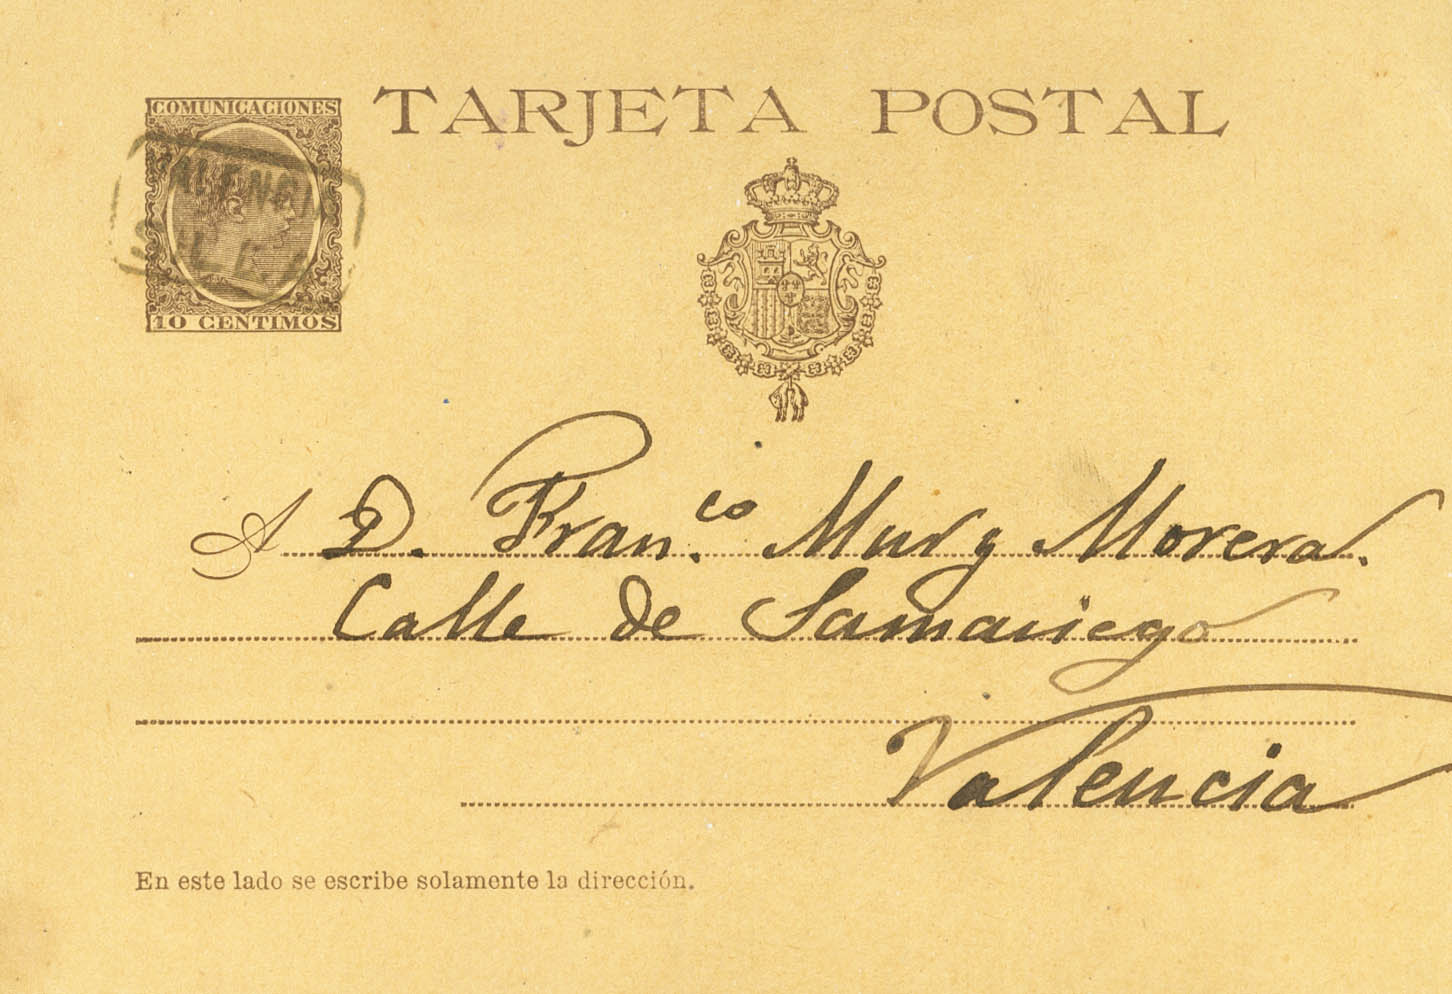 COMUNICACIONES
10 CENTIMOS
TARJETA POSTAL
A D. Fran.co Mur y Morera.
Calle de Samaniego
Valencia
En este lado se escribe solamente la dirección.